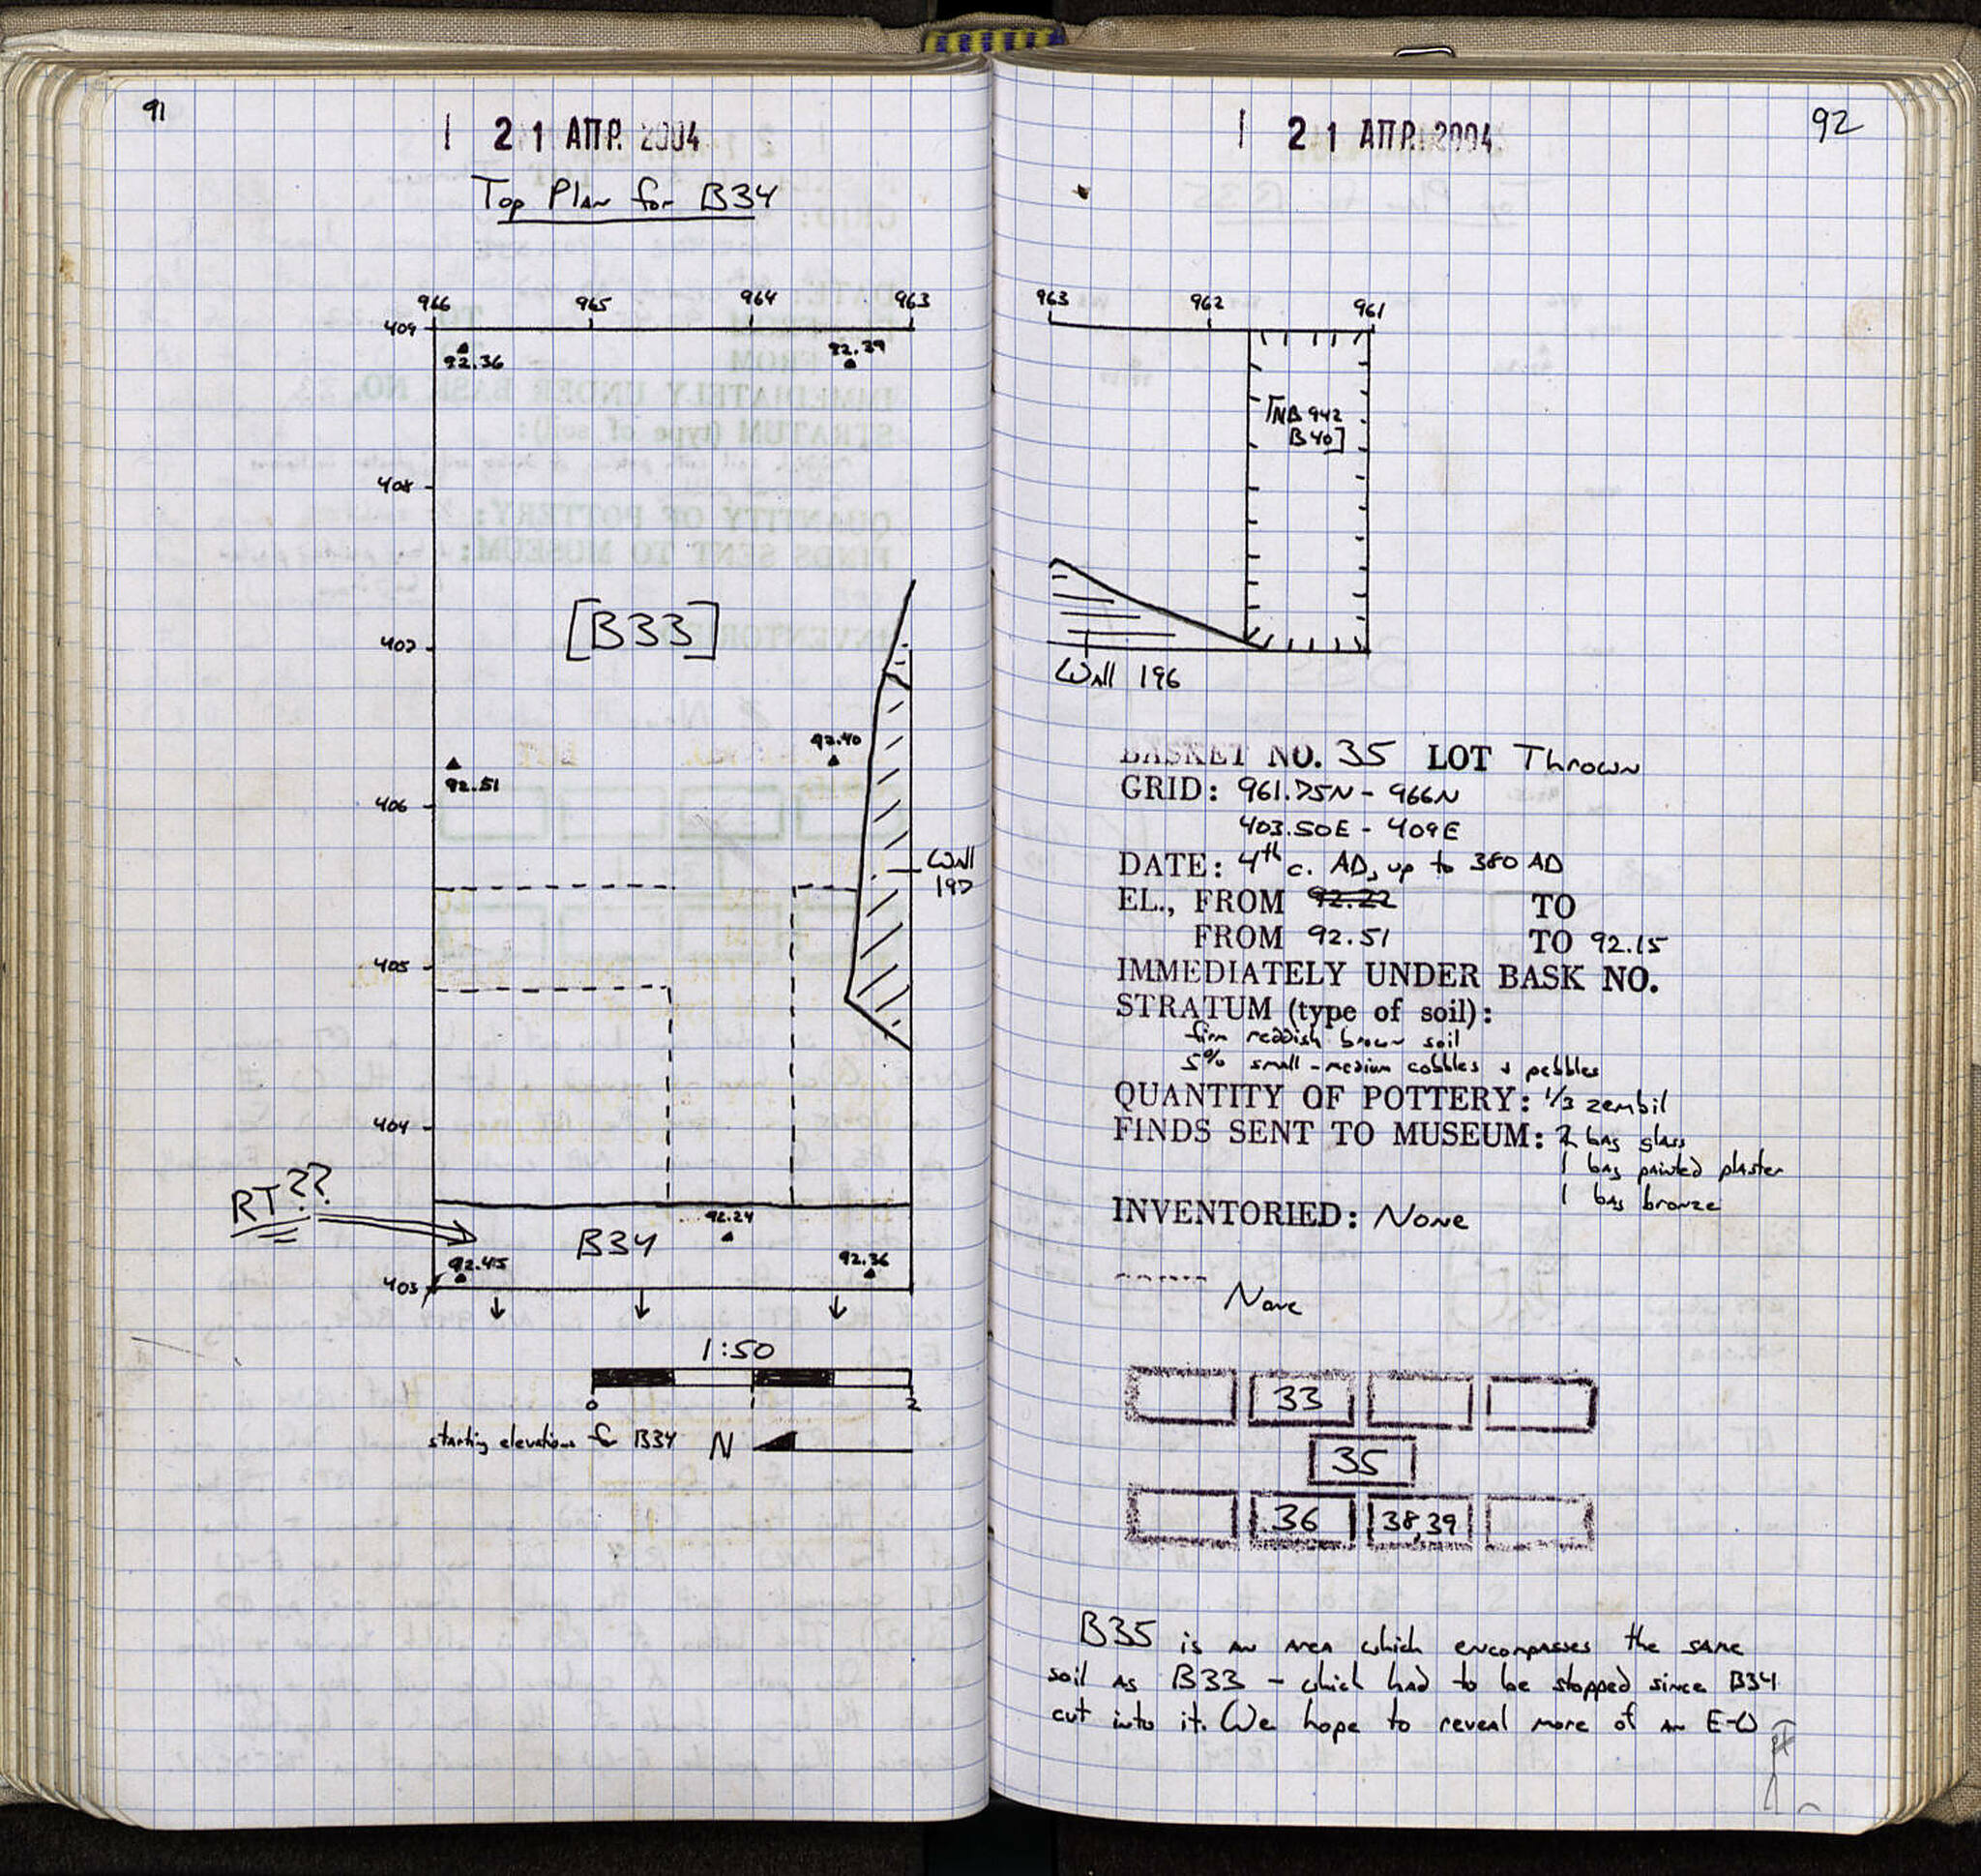 91
21 ΑΠΡ. 2004
Top Plan for B34
966 965 964 963
409
92.36
92.39
408
[B33]
407
92.40
92.51
406
Wall
197
405
404
RT??
92.24
B34
92.45
92.36
403
1:50
0 1 2
starting elevations for B34 N
92
21 ΑΠΡ. 2004
963 962 961
[NB 942
B40]
Wall 196
BASKET NO. 35 LOT Thrown
GRID: 961.75N - 966N
403.50E - 409E
DATE: 4th c. AD, up to 380 AD
EL., FROM 92.22 TO
FROM 92.51 TO 92.15
IMMEDIATELY UNDER BASK NO.
STRATUM (type of soil):
firm reddish brown soil
5% small-medium cobbles + pebbles
QUANTITY OF POTTERY: 1/3 zembil
FINDS SENT TO MUSEUM: 2 bag glass
1 bag painted plaster
1 bag bronze
INVENTORIED: None
None
33
35
36 38,39
B35 is an area which encompasses the same
soil as B33 - which had to be stopped since B34
cut into it. We hope to reveal more of an E-W